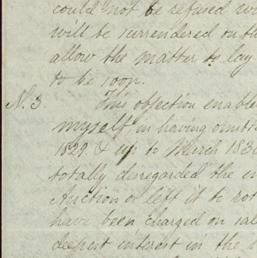 could not be refused
will be surrendered on the
allow the matter to lay
to be soon.
N. 3. This objection enable
myself in having omit
1829 & up to March 183
totally disregarded the
Auction or left it to rot
have been charged on sal
deepest interest in the